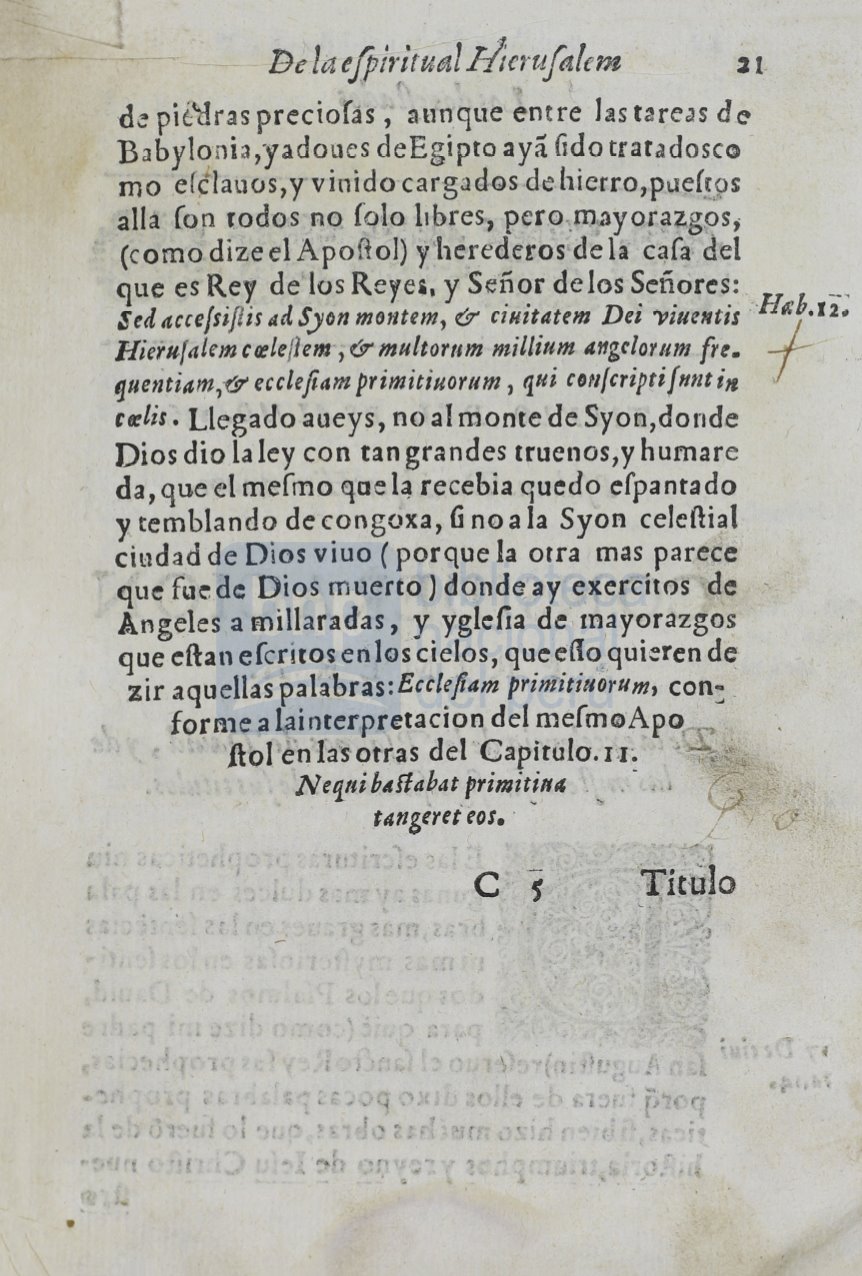 De la eſpiritual Hieruſalem 21
de piedras precioſas, aunque entre las tareas de
Babylonia, y adoues de Egipto ayã ſido tratados co
mo eſclauos, y viuido cargados de hierro, pueſtos
alla ſon todos no ſolo libres, pero mayorazgos,
(como dize el Apoſtol) y herederos de la caſa del
que es Rey de los Reyes, y Señor de los Señores:
Sed acceſsiſtis ad Syon montem, & ciuitatem Dei viuentis
Hæb. 12.
Hieruſalem cœleſtem, & multorum millium angelorum fre-
quentiam, & eccleſiam primitiuorum, qui conſcripti ſunt in
cœlis. Llegado aueys, no al monte de Syon, donde
Dios dio la ley con tan grandes truenos, y humare
da, que el meſmo que la recebia quedo eſpantado
y temblando de congoxa, ſi no a la Syon celeſtial
ciudad de Dios viuo (porque la otra mas parece
que fue de Dios muerto) donde ay exercitos de
Angeles a millaradas, y ygleſia de mayorazgos
que eſtan eſcritos en los cielos, que eſto quieren de
zir aquellas palabras: Eccleſiam primitiuorum, con-
forme a la interpretacion del meſmo Apo
ſtol en las otras del Capitulo. 11.
Ne qui baſtabat primitiua
tangeret eos.
C 5 Titulo